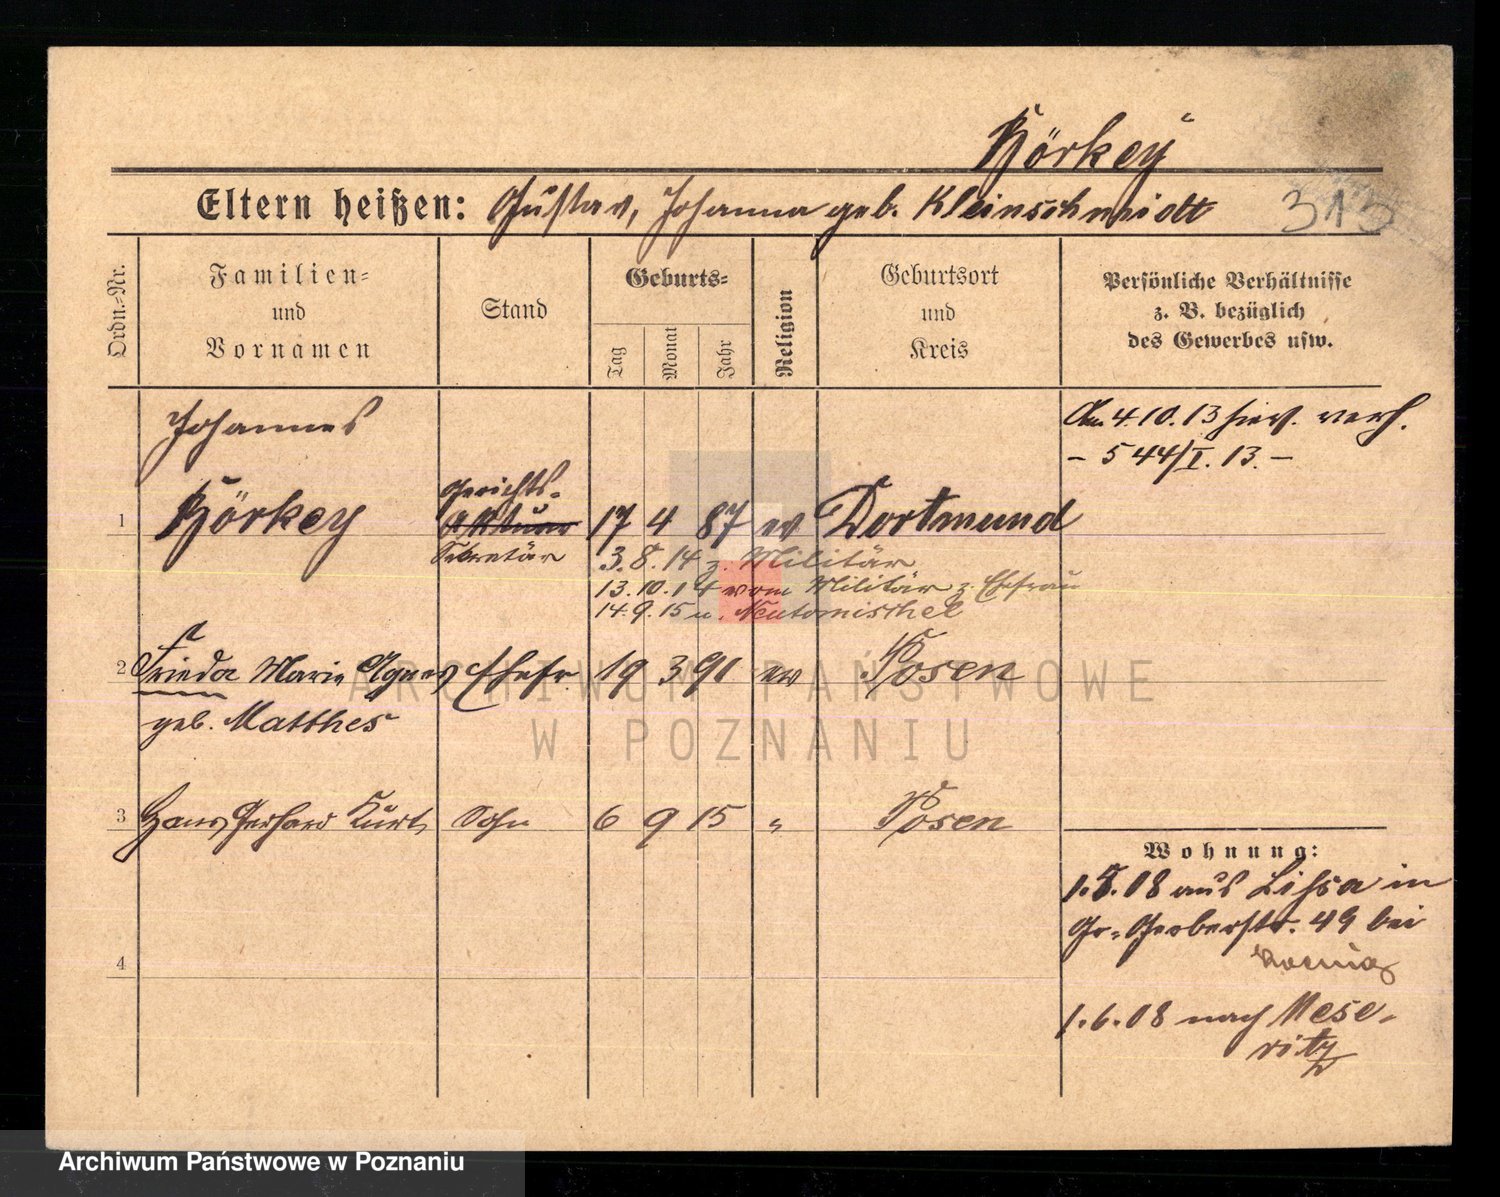 Körkey
Eltern heißen: Gustav, Johanna geb. Kleinschmidt 313
Ordn.-Nr.
Familien-
und
Vornamen
Stand
Geburts-
Tag
Monat
Jahr
Religion
Geburtsort
und
Kreis
Persönliche Verhältnisse
z. B. bezüglich
des Gewerbes usw.
Johannes
Am 4.10.13 hier. verh.
- 544/I. 13. -
Gerichts-
1 Körkey Aktuar 17 4 87 ev Dortmund
Sekretär
3.8.14 z. Militär
13.10.14 vom Militär z. Ehefrau
14.9.15 n. Neutomischel
2 Frieda Marie Agnes Ehefr. 19 3 91 ev Posen
geb. Matthes
3 Hans Gerhard Kurt Sohn 6 9 15 " Posen
4
Wohnung:
1.5.08 aus Lissa in
Gr. Gerberstr. 49 bei
1.6.08 nach Mese-
ritz
ARCHIWUM PAŃSTWOWE
W POZNANIU
Archiwum Państwowe w Poznaniu